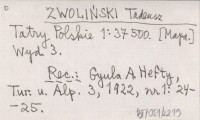 ZWOLIŃSKI Tadeusz
Tatry Polskie 1:37500. [Mapa.]
Wyd. 3.
Rec.: Gyula A. Hefty,
Tur. u. Alp. 3, 1922, nr 1: 24-
-25.